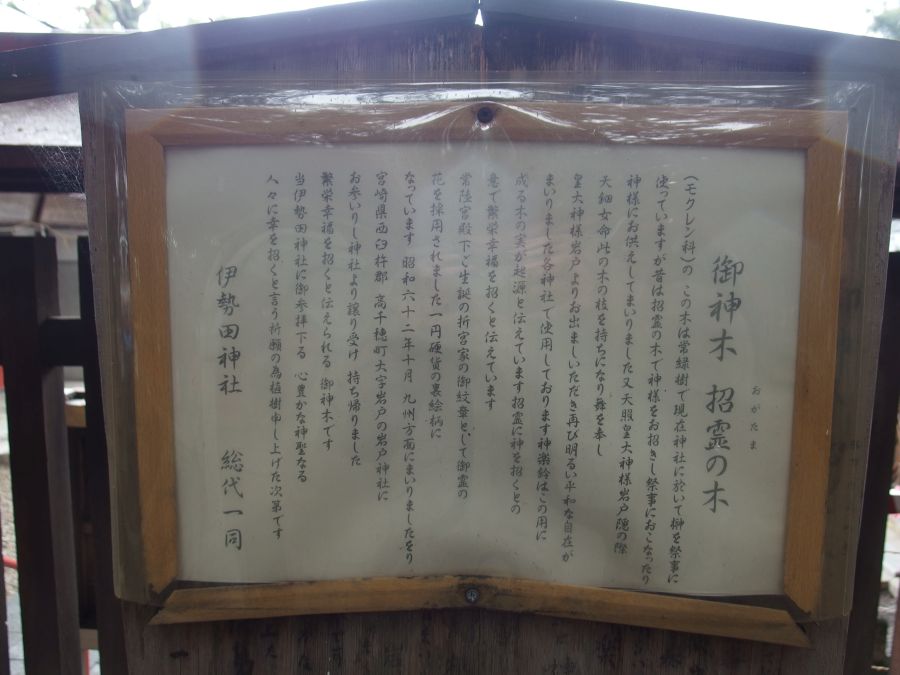 御神木 招霊の木
おがたま
(モクレン科)の この木は常緑樹で現在神社に於いて榊を祭事に
使っていますが昔は招霊の木で神様をお招きし祭事におこなったり
神様にお供えしてまいりました又天照皇大神様岩戸隠の際
天細女命此の木の枝を持ちになり舞を奉し
皇大神様岩戸よりお出ましいただき再び明るい平和な自在が
まいりました各神社で使用しております神楽鈴はこの用に
成る木の実が起源と伝えています招霊に神を招くとの
意で繁栄幸福を招くと伝えています
常陸宮殿下ご生誕の折宮家の御紋章として御霊の
花を採用されました一円硬貨の裏絵柄に
なっています 昭和六十二年十月 九州方面にまいりましたをり
宮崎県西臼杵郡 高千穂町大字岩戸の岩戸神社に
お参いりし神社より譲り受け 持ち帰りました
繁栄幸福を招くと伝えられる 御神木です
当伊勢田神社に御参拝下る 心豊かな神聖なる
人々に幸を招くと言う祈願の為植樹申し上げた次第です
伊勢田神社 総代一同